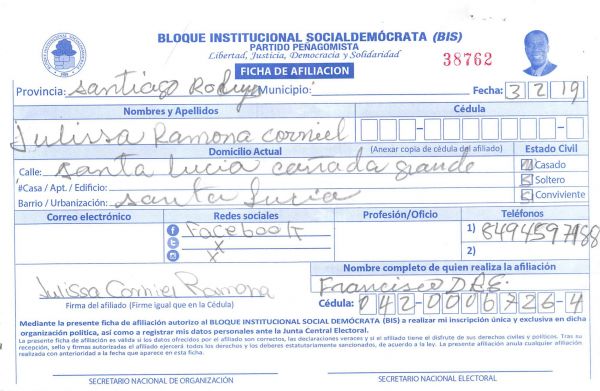 BLOQUE INSTITUCIONAL SOCIALDEMÓCRATA (BIS)
PARTIDO PEÑAGOMISTA
Libertad, Justicia, Democracia y Solidaridad
38762
FICHA DE AFILIACION
Provincia: Santiago Rodrgz Municipio: Fecha: 3 2 19
Nombres y Apellidos Cédula
Julissa Ramona Corniel
(Anexar copia de cédula del afiliado)
Domicilio Actual Estado Civil
Calle: Santa Lucia cañada grande
Casado
#Casa / Apt. / Edificio: Soltero
Barrio / Urbanización: Santa Lucia Conviviente
Correo electrónico Redes sociales Profesión/Oficio Teléfonos
Facebook 1)
2)
Nombre completo de quien realiza la afiliación
Julissa Corniel Ramona Francisco
Firma del afiliado (Firme igual que en la Cédula) Cédula: 042-0006726-4
Mediante la presente ficha de afiliación autorizo al BLOQUE INSTITUCIONAL SOCIAL DEMÓCRATA (BIS) a realizar mi inscripción única y exclusiva en dicha
organización política, así como a registrar mis datos personales ante la Junta Central Electoral.
La presente ficha de afiliación es valida si los datos ofrecidos por el afiliado son correctos, las declaraciones veraces y si el afiliado tiene el disfrute de sus derechos civiles y políticos. Tras su
recepción, sello y firmas autorizadas el afiliado ejercerá todos los derechos y los deberes estatutariamente sancionados, de acuerdo a la ley. La presente afiliación anula cualquier afiliación
realizada con anterioridad a la fecha que aparece en esta ficha.
SECRETARIO NACIONAL DE ORGANIZACIÓN SECRETARIO NACIONAL ELECTORAL